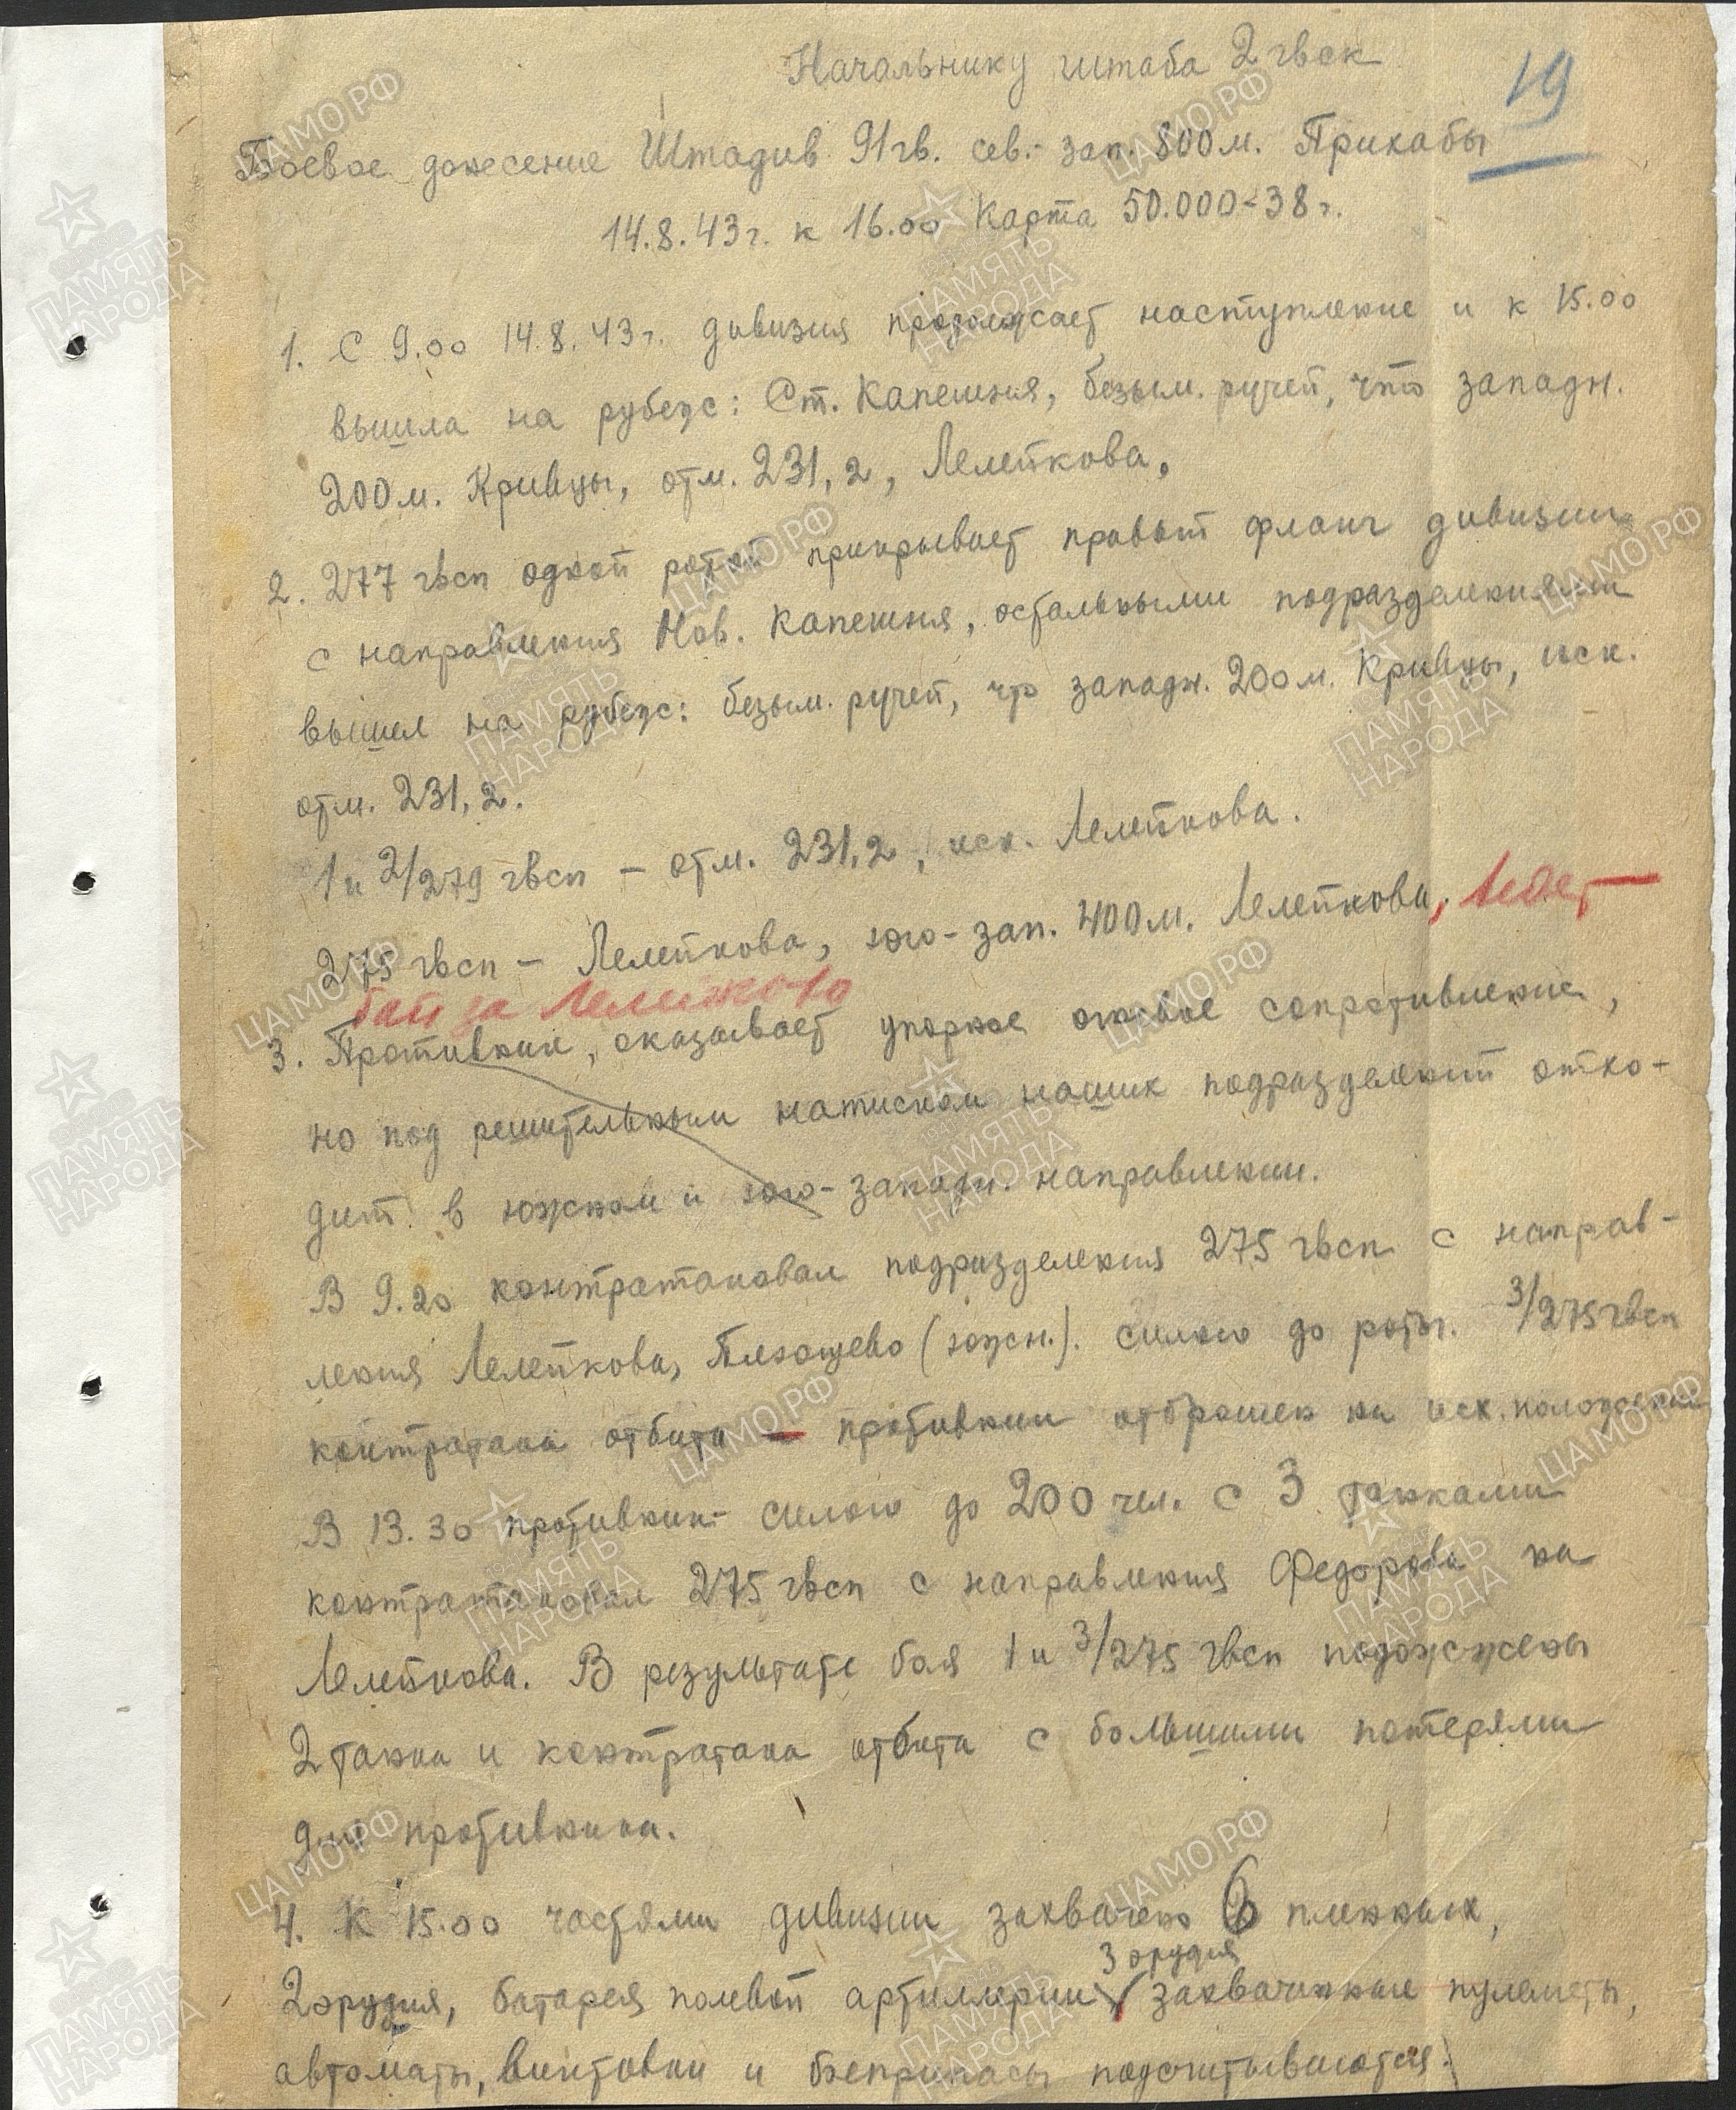 Начальнику штаба 2 гвск
19
Боевое донесение Штадив 91 гв. сев.-зап. 800 м. Прихабы
14.8.43 г. к 16.00 Карта 50.000-38 г.
1. С 9.00 14.8.43 г. дивизия продолжает наступление и к 15.00
вышла на рубеж: Ст. Капешня, безым. ручей, что западн.
200 м. Кривцы, отм. 231,2, Лелейкова.
2. 277 гвсп одной ротой прикрывает правый фланг дивизии
с направления Нов. Капешня, остальными подразделениями
вышел на рубеж: безым. ручей, что западн. 200 м. Кривцы, иск.
отм. 231,2.
1 и 2/279 гвсп – отм. 231,2, иск. Лелейкова.
275 гвсп – Лелейкова, юго-зап. 400 м. Лелейкова, ведет
бой за Лелейково
3. Противник, оказывает упорное огневое сопротивление,
но под решительным натиском наших подразделений отхо-
дит в южном и юго-западн. направлении.
В 9.20 контратаковал подразделения 275 гвсп с направ-
ления Лелейкова, (южн.). силою до роты. 3/275 гвсп
контратака отбита – противник отброшен на исх. положение
В 13.30 противник силою до 200 чел. с 3 танками
контратаковал 275 гвсп с направления Федорова на
Лелейкова. В результате боя 1 и 3/275 гвсп подожжены
2 танка и контратака отбита с большими потерями
для противника.
4. К 15.00 частями дивизии захвачено 6 пленных,
3 орудия
2 орудия, батарея полевой артиллерии захваченные пулеметы,
автоматы, винтовки и боеприпасы подсчитываются.
ЦАМО РФ
ПАМЯТЬ НАРОДА